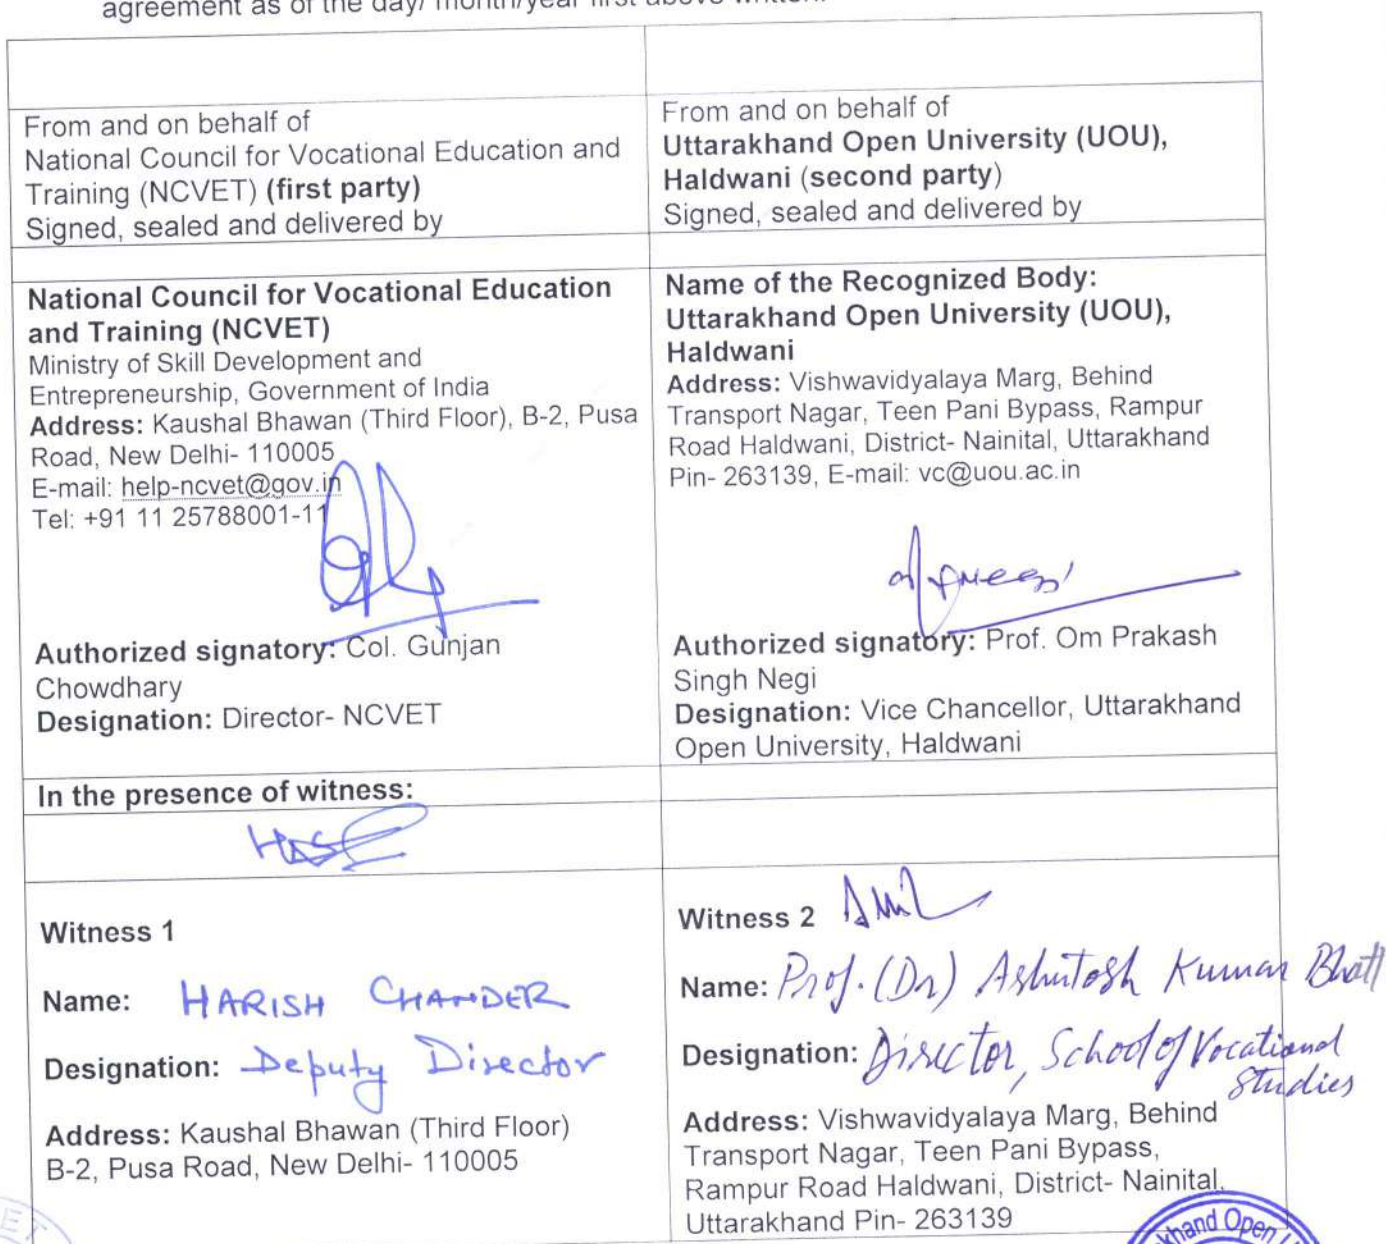 agreement as of the day/ month/year first above written.
From and on behalf of
National Council for Vocational Education and
Training (NCVET) (first party)
Signed, sealed and delivered by
From and on behalf of
Uttarakhand Open University (UOU),
Haldwani (second party)
Signed, sealed and delivered by
National Council for Vocational Education
and Training (NCVET)
Ministry of Skill Development and
Entrepreneurship, Government of India
Address: Kaushal Bhawan (Third Floor), B-2, Pusa
Road, New Delhi- 110005
E-mail: help-ncvet@gov.in
Tel: +91 11 25788001-11
Authorized signatory: Col. Gunjan
Chowdhary
Designation: Director- NCVET
Name of the Recognized Body:
Uttarakhand Open University (UOU),
Haldwani
Address: Vishwavidyalaya Marg, Behind
Transport Nagar, Teen Pani Bypass, Rampur
Road Haldwani, District- Nainital, Uttarakhand
Pin- 263139, E-mail: vc@uou.ac.in
Authorized signatory: Prof. Om Prakash
Singh Negi
Designation: Vice Chancellor, Uttarakhand
Open University, Haldwani
In the presence of witness:
Witness 1
Name: HARISH CHANDER
Designation: Deputy Director
Address: Kaushal Bhawan (Third Floor)
B-2, Pusa Road, New Delhi- 110005
Witness 2
Name: Prof. (Dr) Ashutosh Kumar Bhatt
Designation: Director, School of Vocational
Studies
Address: Vishwavidyalaya Marg, Behind
Transport Nagar, Teen Pani Bypass,
Rampur Road Haldwani, District- Nainital,
Uttarakhand Pin- 263139
Open